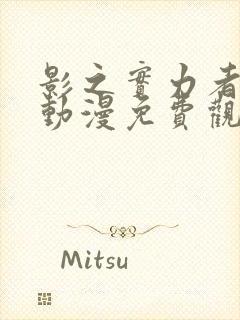 影之實力者
動漫免費觀
Mitsu